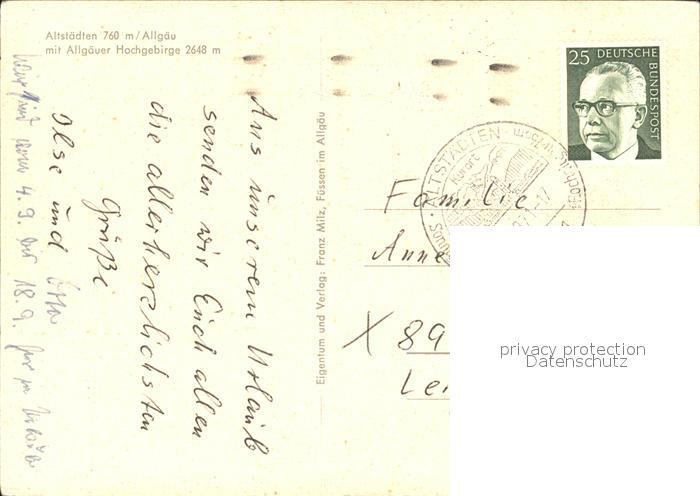 Altstädten 760 m/Allgäu
mit Allgäuer Hochgebirge 2648 m
Aus unserem Urlaub
senden wir Euch allen
die allerherzlichsten
Grüße
Ilse und Otto
4.9. bis 18.9.
Eigentum und Verlag: Franz Milz, Füssen im Allgäu
25 DEUTSCHE
BUNDESPOST
ALTSTÄDTEN
Kurort
Familie
Anne
X 89
Lei
privacy protection
Datenschutz